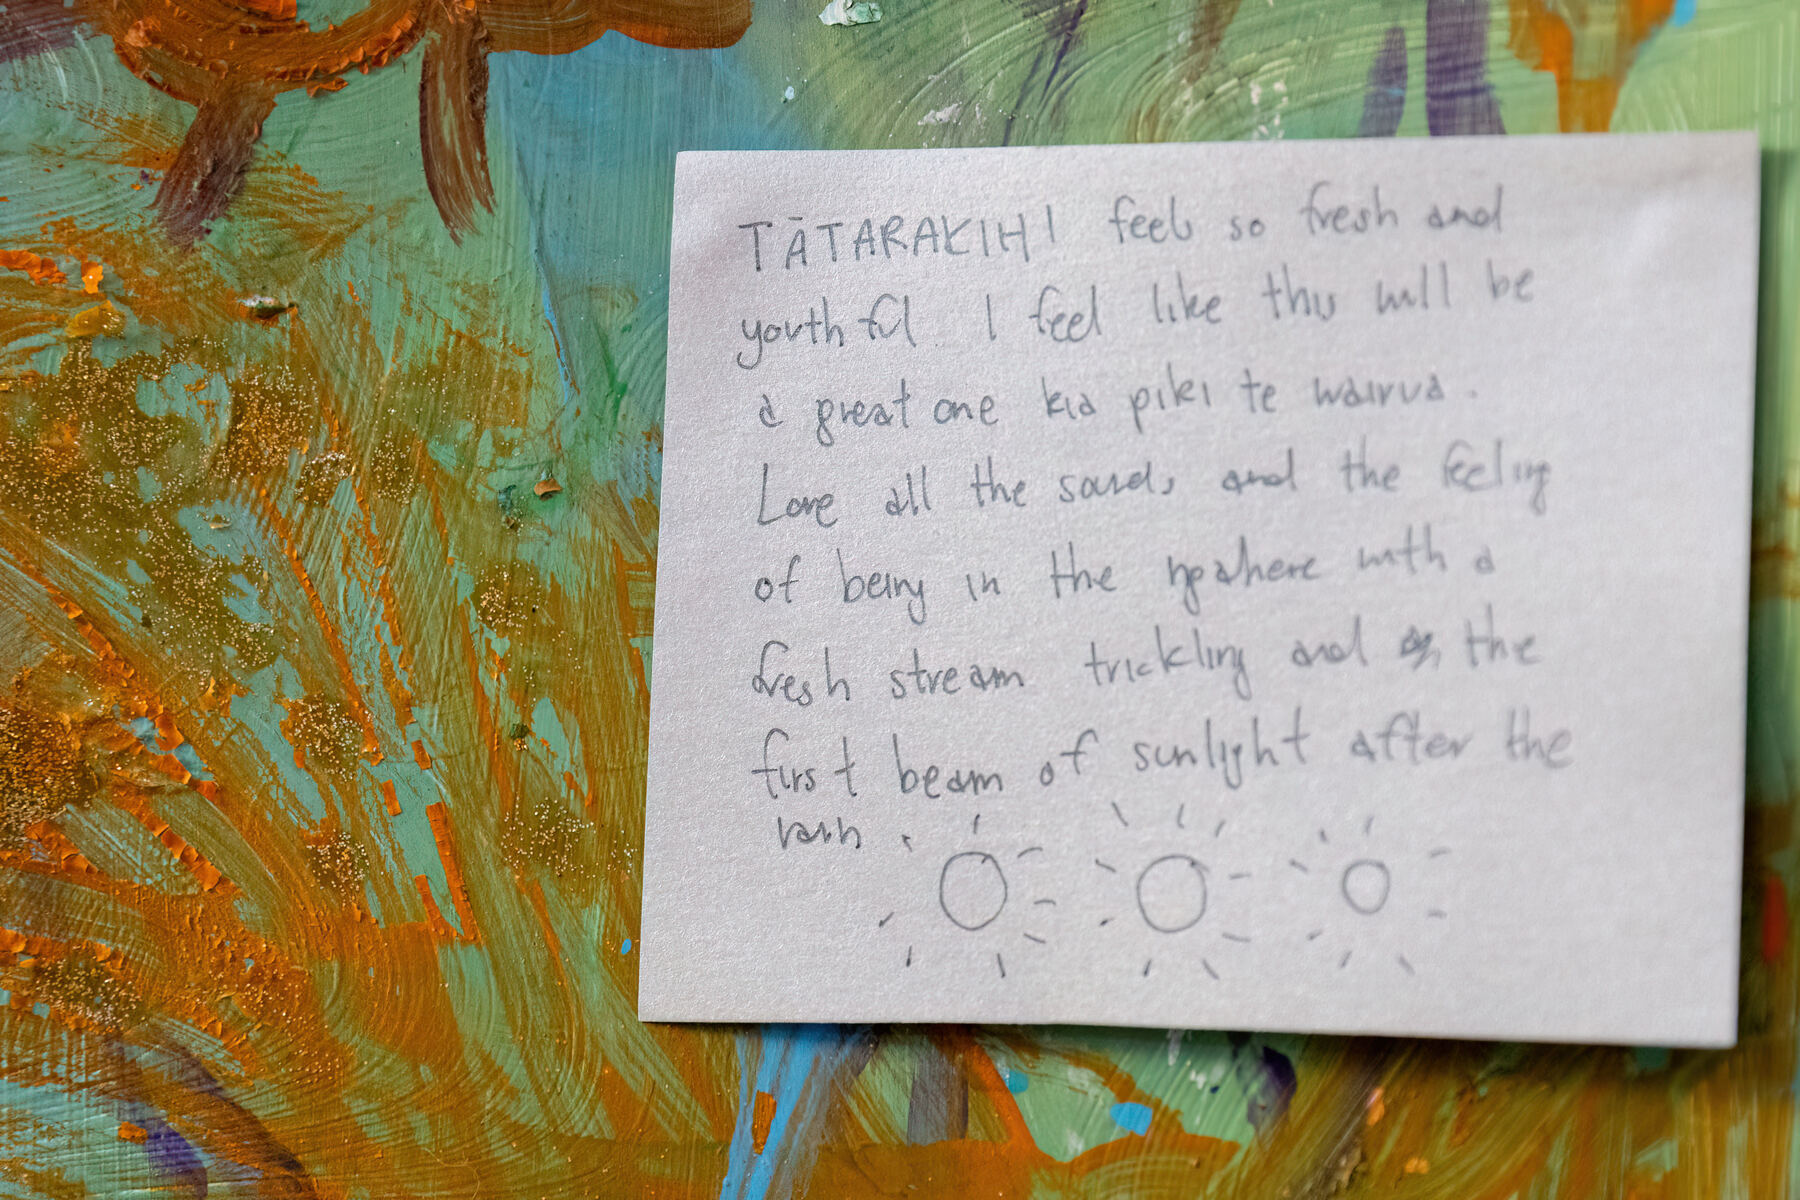 TĀTARAKIHI feels so fresh and
youthful. I feel like this will be
a great one kia piki te wairua.
Love all the sounds and the feeling
of being in the ngahere with a
fresh stream trickling and the
first beam of sunlight after the
rain.